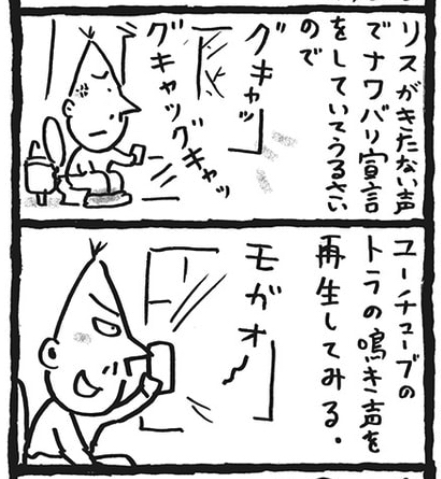 リスがきたない声
でナワバリ宣言
をしていてうるさい
ので
グギャッ
グキャッグキャッ
ユーチューブの
トラの鳴き声を
再生してみる.
モガオ〜